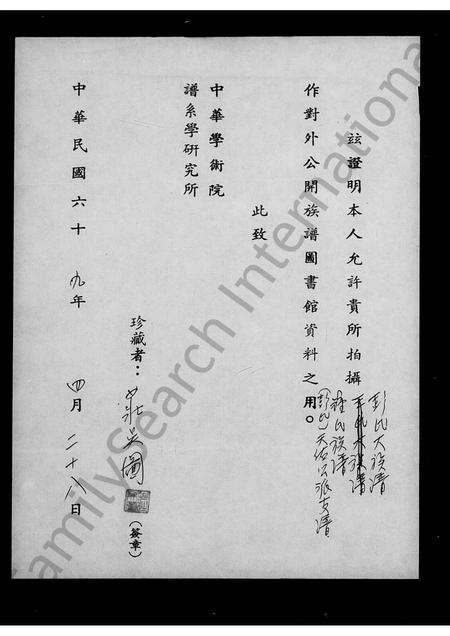 茲證明本人允許貴所拍攝
彭氏大族譜
族譜
作對外公開族譜圖書館資料之用。
此致
中華學術院
譜系學研究所
珍藏者：莊吳圖
（簽章）
中華民國六十九年四月二十八日
FamilySearch International